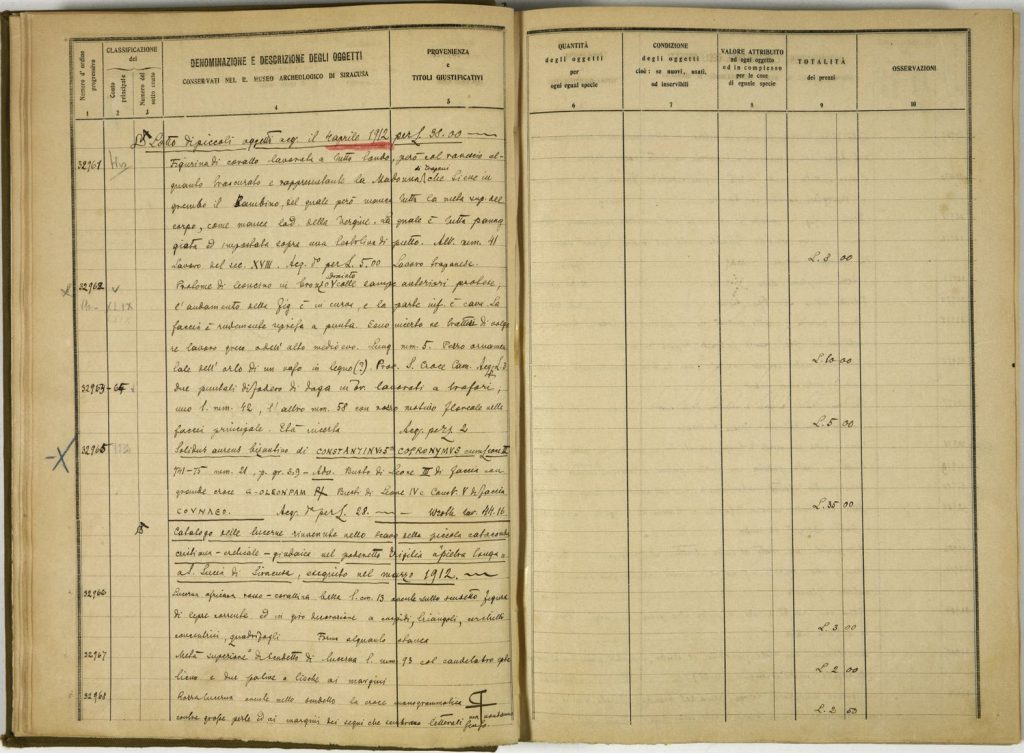 Numero d'ordine progressivo
CLASSIFICAZIONE
del
Conto principale
Numero del sotto conto
DENOMINAZIONE E DESCRIZIONE DEGLI OGGETTI
CONSERVATI NEL R. MUSEO ARCHEOLOGICO DI SIRACUSA
PROVENIENZA
e
TITOLI GIUSTIFICATIVI
1 2 3 4 5
QUANTITÀ
degli oggetti
per
ogni egual specie
CONDIZIONE
degli oggetti
cioè: se nuovi, usati,
od inservibili
VALORE ATTRIBUITO
ad ogni oggetto
od in complesso
per le cose
di eguale specie
TOTALITÀ
dei prezzi
OSSERVAZIONI
6 7 8 9 10
Lotto di piccoli oggetti acq. il 4 aprile 1912 per £ 38.00
32961 Figurina di corallo lavorata a tutto tondo, però col rovescio al-
quanto trascurato e rappresentante la Madonna di Trapani che tiene in
grembo il Bambino, del quale però manca tutta la metà sup. del
corpo, come manca la d. della Vergine. La quale è tutta panneg
giata ed impostata sopra una di petto. Alt. mm. 41
Lavoro del sec. XVIII. Acq. per L. 5.00 Lavoro trapanese.
L. 8 00
32962 Protome di leoncino in bronzo colle zampe anteriori protese,
l'andamento della fig è in curva, e la parte inf. è cava. La
faccia è rudemente a punta. Sono incerto se trattasi di volga
re lavoro greco o dell'alto medioevo. Lung mm. 5. Pezzo ornamen
tale dell'orlo di un vaso in legno (?) Prov. S. Croce Cam. Acq. L. 3
L. 10 00
32963-64 due puntali di fodero di daga in br. lavorati a trafori,
uno l. mm. 42, l'altro mm. 58 con motivo floreale nelle
faccie principale. Età incerta Acq. per £ 2
L. 5 00
32965 Solidus aureus bizantino di CONSTANTINVS 5° COPRONYMVS cum Leone IV
741-75 mm. 21, p. gr. 3.9 - Busto di Leone III di faccia con
grande croce Busti di Leone IV e Const. V di faccia
Acq. per £ 28. Wroth tav. 44.16.
L. 35 00
Catalogo delle lucerne rinvenute nello scavo della piccola catacomba
cristiana - ereticale - giudaica nel poderetto Trigilia a pietra longa
a S. Lucia di Siracusa, eseguito nel marzo 1912.
32966 Lucerna africana rosso-corallina bella l. cm. 13 avente sullo scudetto figura
di lepre corrente ed in giro decorazione a triangoli, cerchietti
concentrici, quadrifogli Forma alquanto
L. 3 00
32967 Metà superiore di scudetto di lucerna l. mm. 93 col candelabro epta
licno e due palme a lische ai margini
L. 2 00
32968 Rozza lucerna avente nello scudetto la croce monogrammatica
contro grosse perle ed ai margini dei segni che sembrano letterali
L. 2 50